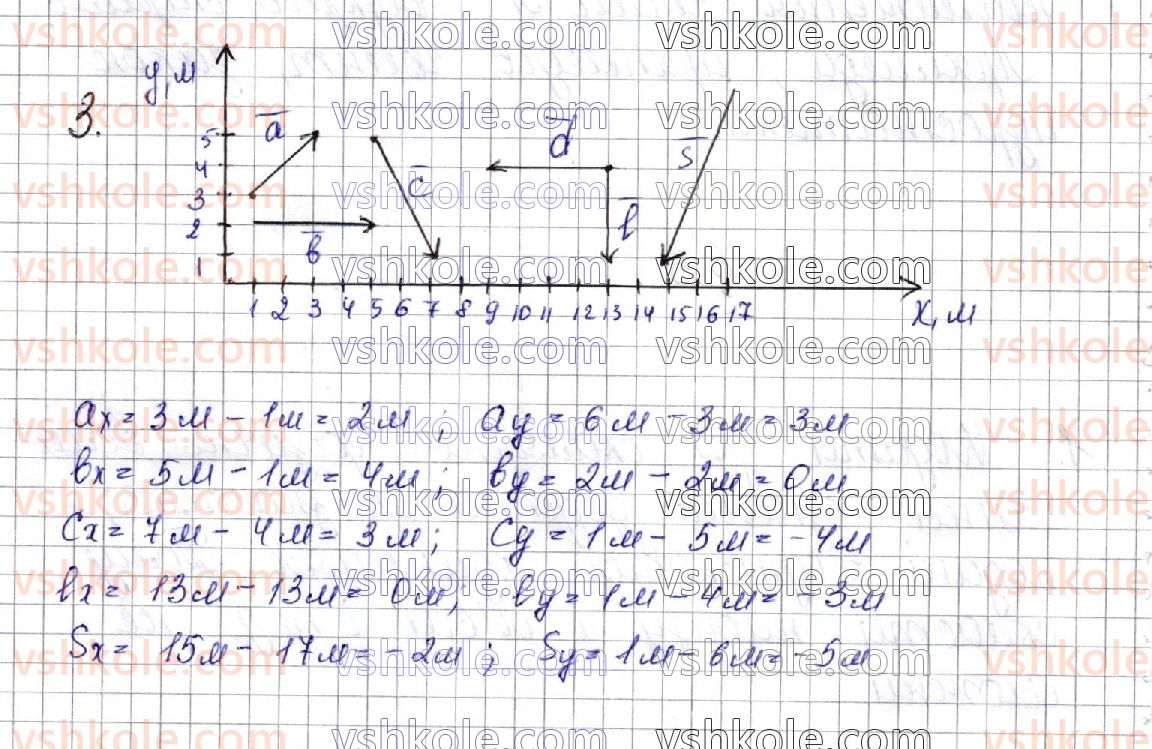 3.
y, м
5
4
3
2
1
a
b
c
d
l
s
1 2 3 4 5 6 7 8 9 10 11 12 13 14 15 16 17
x, м
ax = 3м - 1м = 2м ; ay = 6м - 3м = 3м
bx = 5м - 1м = 4м ; by = 2м - 2м = 0м
Cx = 7м - 4м = 3м ; Cy = 1м - 5м = -4м
lx = 13м - 13м = 0м ; ly = 1м - 4м = -3м
Sx = 15м - 17м = -2м ; Sy = 1м - 6м = -5м
vshkole.com